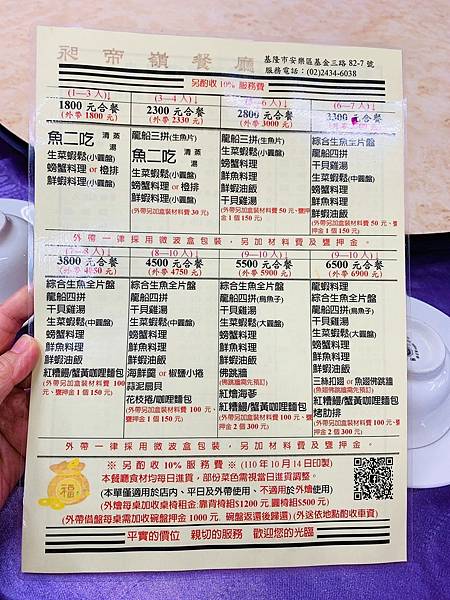 昶帝嶺餐廳
基隆市安樂區基金三路 82-7 號
服務電話：(02)2434-6038
另酌收 10% 服務費
(1—3 人)
1800 元合餐
(外帶 1800 元)
魚二吃 清蒸 湯
生菜蝦鬆(小圓盤)
螃蟹料理 or 橙排
鮮蝦料理(小圓盤)
(3—4 人)
2300 元合餐
(外帶 2330 元)
龍船三拼(生魚片)
魚二吃 清蒸 湯
生菜蝦鬆(小圓盤)
螃蟹料理 or 橙排
鮮蝦料理
(外帶另加盒裝材料費 30 元)
6 人)
2800 元合餐
(外帶 3000 元)
龍船三拼(生魚片)
干貝雞湯
生菜蝦鬆(小圓盤)
螃蟹料理
鮮魚料理
鮮蝦油飯
(外帶另加盒裝材料費 50 元、甕押金 1 個 150 元)
(6—7 人)
3300 元合餐
綜合生魚全片盤
龍船四拼
干貝雞湯
生菜蝦鬆(中圓盤)
螃蟹料理
鮮魚料理
鮮蝦油飯
(外帶另加盒裝材料費 50 元、甕押金 1 個 150 元)
外帶一律採用微波盒包裝，另加材料費及甕押金。
8 人)
3800 元合餐
(外帶 4050 元)
綜合生魚全片盤
龍船四拼
干貝雞湯
生菜蝦鬆(中圓盤)
螃蟹料理
鮮魚料理
鮮蝦油飯
紅糟鰻/蟹黃咖哩麵包
(外帶另加盒裝材料費 100 元、甕押金 1 個 150 元)
(8—10 人)
4500 元合餐
(外帶 4750 元)
綜合生魚全片盤
龍船四拼
干貝雞湯
生菜蝦鬆(中圓盤)
螃蟹料理
鮮魚料理
鮮蝦油飯
海鮮羹 or 椒鹽小捲
蒜泥扇貝
花枝捲/咖哩麵包
(外帶另加盒裝材料費 100 元、甕押金 1 個 150 元)
(9—10 人)
5500 元合餐
(外帶 5900 元)
綜合生魚全片盤
龍船四拼(烏魚子)
干貝雞湯
生菜蝦鬆(大圓盤)
螃蟹料理
鮮魚料理
鮮蝦油飯
佛跳牆
(佛跳牆需先預訂)
紅燴海蔘
紅糟鰻/蟹黃咖哩麵包
(外帶另加盒裝材料費 100 元、甕押金 2 個 300 元)
(9—10 人)
6500 元合餐
(外帶 6900 元)
鮮蝦料理
綜合生魚全片盤
龍船四拼(烏魚子)
干貝雞湯
生菜蝦鬆(大圓盤)
螃蟹料理
鮮魚料理
鮮蝦油飯
三絲扣翅 or 魚翅佛跳牆
(佛跳牆需先預訂)
紅糟鰻/蟹黃咖哩麵包
烤肋排
(外帶另加盒裝材料費 100 元、甕押金 2 個 300 元)
外帶一律採用微波盒包裝，另加材料費及甕押金。
※ 另酌收 10% 服務費 ※ (110 年 10 月 14 日印製)
本餐廳食材均每日進貨，部份菜色需視當日進貨調整。
(本單僅適用於店內、平日及外帶使用、不適用於外燴使用)
(外燴每桌加收桌椅租金.靠背椅組$1200 元.圓椅組$500 元)
(外帶借盤每桌需加收碗盤押金 1000 元. 碗盤返還後歸還) (外送依地點酌收車資)
福
平實的價位 親切的服務 歡迎您的光臨